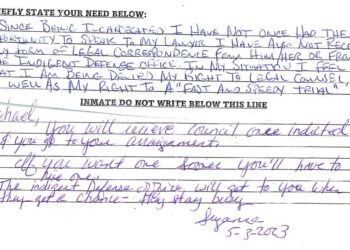 EFLY STATE YOUR NEED BELOW:
SINCE BEING INCARCERATED I HAVE NOT ONCE HAD THE
ORTUNITY TO SPEAK TO MY LAWYER I HAVE ALSO NOT RECE
Y FORM OF LEGAL CORRESPONDENCE FROM HIM/HER OR FRO
E INDIGENT DEFENSE OFFICE IN MY SITUATION I FEEL
AT I AM BEING DENIED MY RIGHT TO LEGAL COUNSEL,
WELL AS MY RIGHT TO A "FAST AND SPEEDY TRIAL"
INMATE DO NOT WRITE BELOW THIS LINE
ichael, you will recieve council once indicted
if you go to your arraignment.
If you want one sooner you'll have to
hire one.
The indigent Defense office will get to you when
they get a chance - they stay busy
Suzanne
5-3-2023